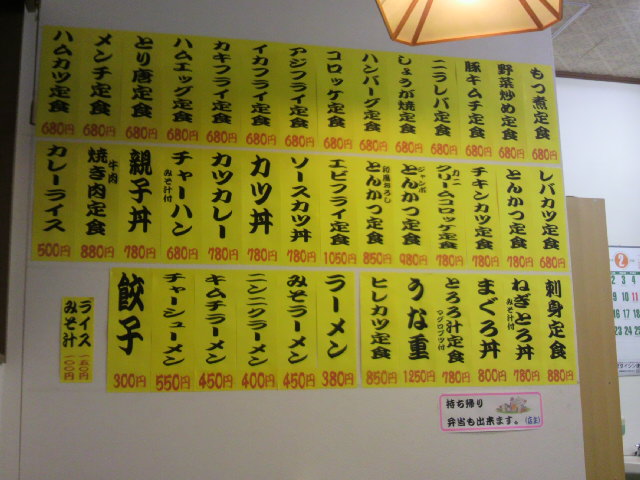 もつ煮定食 680円
野菜炒め定食 680円
豚キムチ定食 680円
ニラレバ定食 680円
しょうが焼定食 680円
ハンバーグ定食 680円
コロッケ定食 680円
アジフライ定食 680円
イカフライ定食 680円
カキフライ定食 680円
ハムエッグ定食 680円
とり唐定食 680円
メンチ定食 680円
ハムカツ定食 680円
レバカツ定食 680円
とんかつ定食 780円
チキンカツ定食 780円
カニクリームコロッケ定食 780円
ジャンボとんかつ定食 980円
和風おろしとんかつ定食 850円
エビフライ定食 1050円
ソースカツ丼 780円
カツ丼 780円
カツカレー 780円
チャーハン みそ汁付 680円
親子丼 780円
牛肉焼き肉定食 880円
カレーライス 500円
刺身定食 880円
ねぎとろ丼 みそ汁付 780円
まぐろ丼 800円
とろろ汁定食 マグロブツ付 780円
うな重 1250円
ヒレカツ定食 850円
ラーメン 380円
みそラーメン 450円
ニンニクラーメン 400円
キムチラーメン 450円
チャーシューメン 550円
餃子 300円
ライス 一五〇円
みそ汁 一〇〇円
持ち帰り
弁当も出来ます。(店主)
2